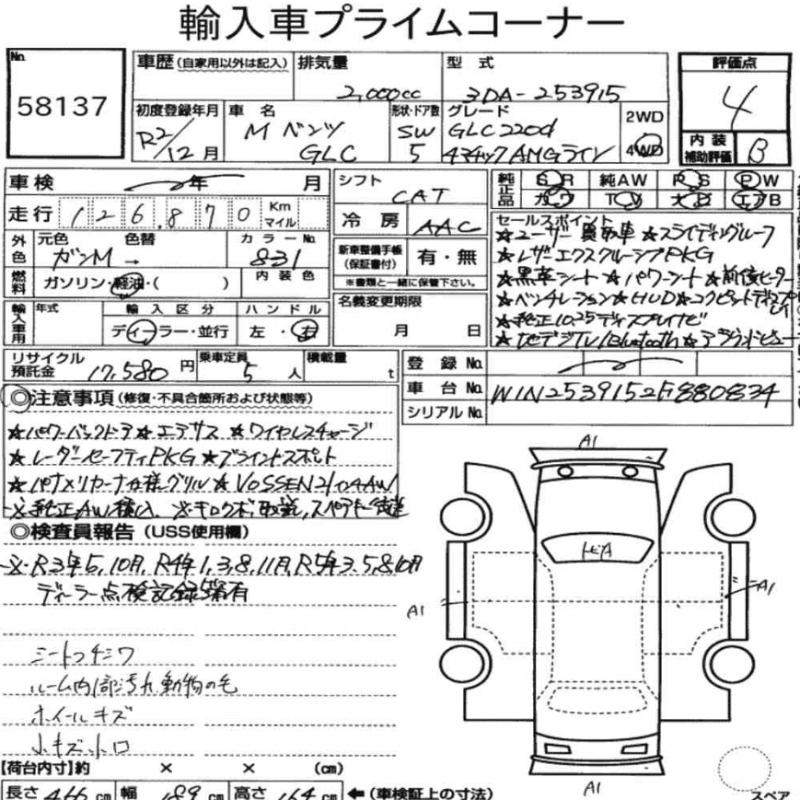 輸入車プライムコーナー
No. 58137
車歴 (自家用以外は記入) 排気量 2,000cc 型式 3DA-253915
評価点 4
初度登録年月 R2/12月 車名 Mベンツ GLC 形状・ドア数 SW 5 グレード GLC220d 4マチックAMGライン 2WD 4WD
内装補助評価 B
車検 年 月 シフト CAT
純正品 SR 純AW PS PW
カワ TV ナビ エアB
走行 126,870 Km マイル 冷房 AAC
外色 元色 ガンM 色替 → カラーNo. 831
燃料 ガソリン・軽油・( ) 内装色
新車整備手帳 (保証書付) 有・無
※書類と一緒に保管下さい。
セールスポイント
★ユーザー買取車 ★スライディングルーフ
★レザーエクスクルーシブPKG
★黒革シート ★パワーシート ★前後ヒーター
★ベンチレーション ★HUD ★コクピットディスプレイ
★純正10.25ディスプレイナビ
★地デジTV/Bluetooth ★アラウンドビュー
輸入車用 年式 輸入区分 ディーラー・並行 ハンドル 左・右
名義変更期限 月 日
リサイクル預託金 17,580円 乗車定員 5人 積載量 t
登録No.
車台No. W1N2539152F880834
シリアルNo.
◎注意事項 (修復・不具合箇所および状態等)
★パワーバックドア ★エアサス ★ワイヤレスチャージ
★レーダーセーフティPKG ★ブラインドスポット
★パナメリカーナ仕様グリル ★VOSSEN21インチAW
※純正AW積込 ※キロクボ取説、スペアキー後送
◎検査員報告 (USS使用欄)
※R3年5,10月,R4年1,3,8,11月,R5年3,5,8,10月
ディーラー点検記録簿有
シートコゲシワ
ルーム内部汚れ動物の毛
ホイールキズ
小キズ小凹
A1
トビA
A1
A1
A1
【荷台内寸】約 × × (cm)
長さ 466cm 幅 189cm 高さ 164cm ←(車検証上の寸法)
スペア